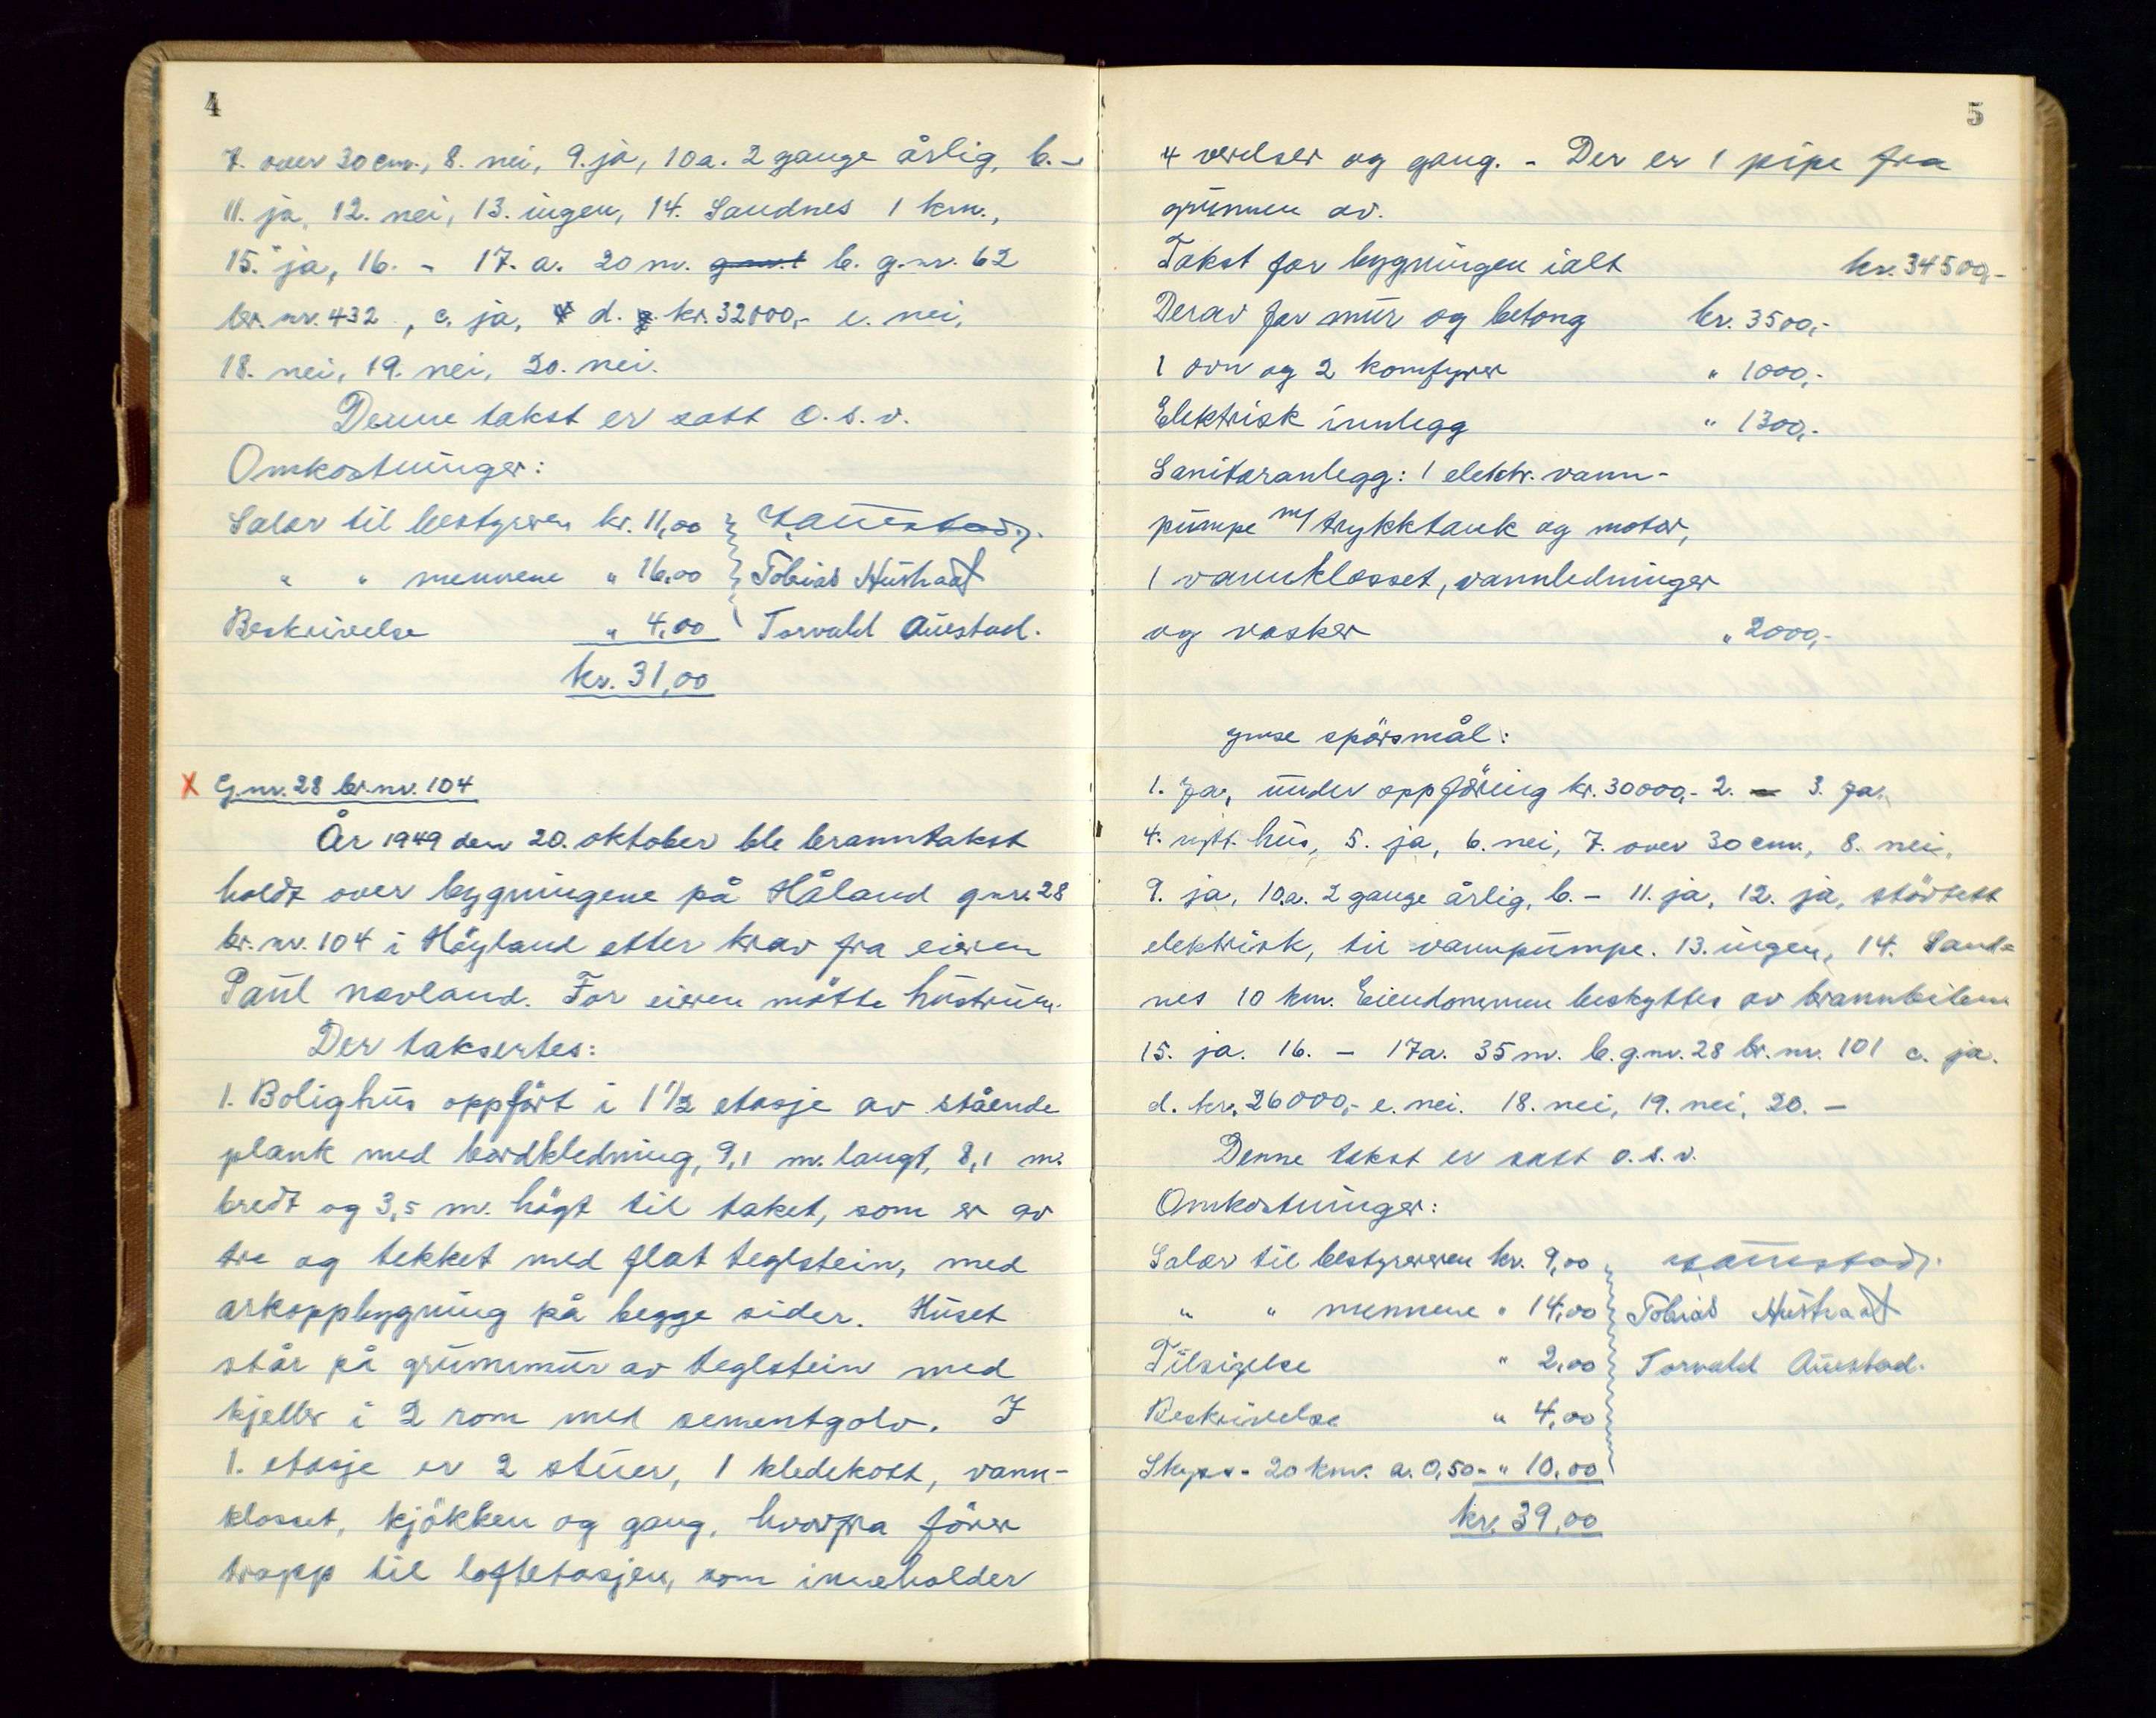 4
7. over 30 cm., 8. nei, 9. ja, 10a. 2 gange årlig, b. -
11. ja, 12. nei, 13. ingen, 14. Sandnes 1 km.,
15. ja, 16. - 17. a. 20 m. b. g.nr. 62
br.nr. 432, c. ja, d. kr. 32000,- e. nei,
18. nei, 19. nei, 20. nei.
Denne takst er satt o.s.v.
Omkostninger:
Salær til bestyreren kr. 11,00
" " mennene " 16,00 Tobias Hústraat
Beskrivelse " 4,00 Torvald Aúestad.
kr. 31,00
X G.nr. 28 br.nr. 104
År 1949 den 20. oktober ble branntakst
holdt over bygningene på Håland g.nr. 28
br.nr. 104 i Höyland etter krav fra eieren
Paúl Navland. For eieren mötte hústrúen.
Der taksertes:
1. Bolighús oppfört i 1 1/2 etasje av stående
plank med bordkledning, 9,1 m. langt, 8,1 m.
bredt og 3,5 m. högt til taket, som er av
tre og tekket med flat teglstein, med
arkoppbygning på begge sider. Húset
står på grúnnmúr av teglstein med
kjeller i 2 rom med sementgolv. I
1. etasje er 2 stúer, 1 kledekott, vann-
klosset, kjökken og gang, hvorfra förer
trapp til loftetasjen, som inneholder
5
4 verelser og gang. - Der er 1 pipe fra
grúnnen av.
Takst for bygningen ialt kr. 34500,-
Derav for múr og betong kr. 3500,-
1 ovn og 2 komfyrer " 1000,-
Elektrisk innlegg " 1300,-
Sanitæranlegg: 1 elektr. vann-
púmpe m/ trykktank og motor,
1 vannklosset, vannledninger
og vasker " 2000,-
spörsmål:
1. Ja, únder oppföring kr. 30000,- 2. - 3. Ja.
4. nytt hús, 5. ja, 6. nei, 7. over 30 cm., 8. nei,
9. ja, 10.a. 2 gange årlig, b. - 11. ja, 12. ja, störtett
elektrisk, til vannpúmpe. 13. ingen, 14. Sand-
nes 10 km. Eiendommen beskyttes av brannbilen
15. ja. 16. - 17a. 35 m. b. g.nr. 28 br.nr. 101 c. ja.
d. kr. 26000,- e. nei. 18. nei, 19. nei, 20. -
Denne takst er satt o.s.v.
Omkostninger:
Salær til bestyreren kr. 9,00
" " mennene " 14,00 Tobias Hústraat
Tilsigelse " 2,00 Torvald Aúestad.
Beskrivelse " 4,00
Skyss - 20 km. a. 0,50 - " 10,00
kr. 39,00